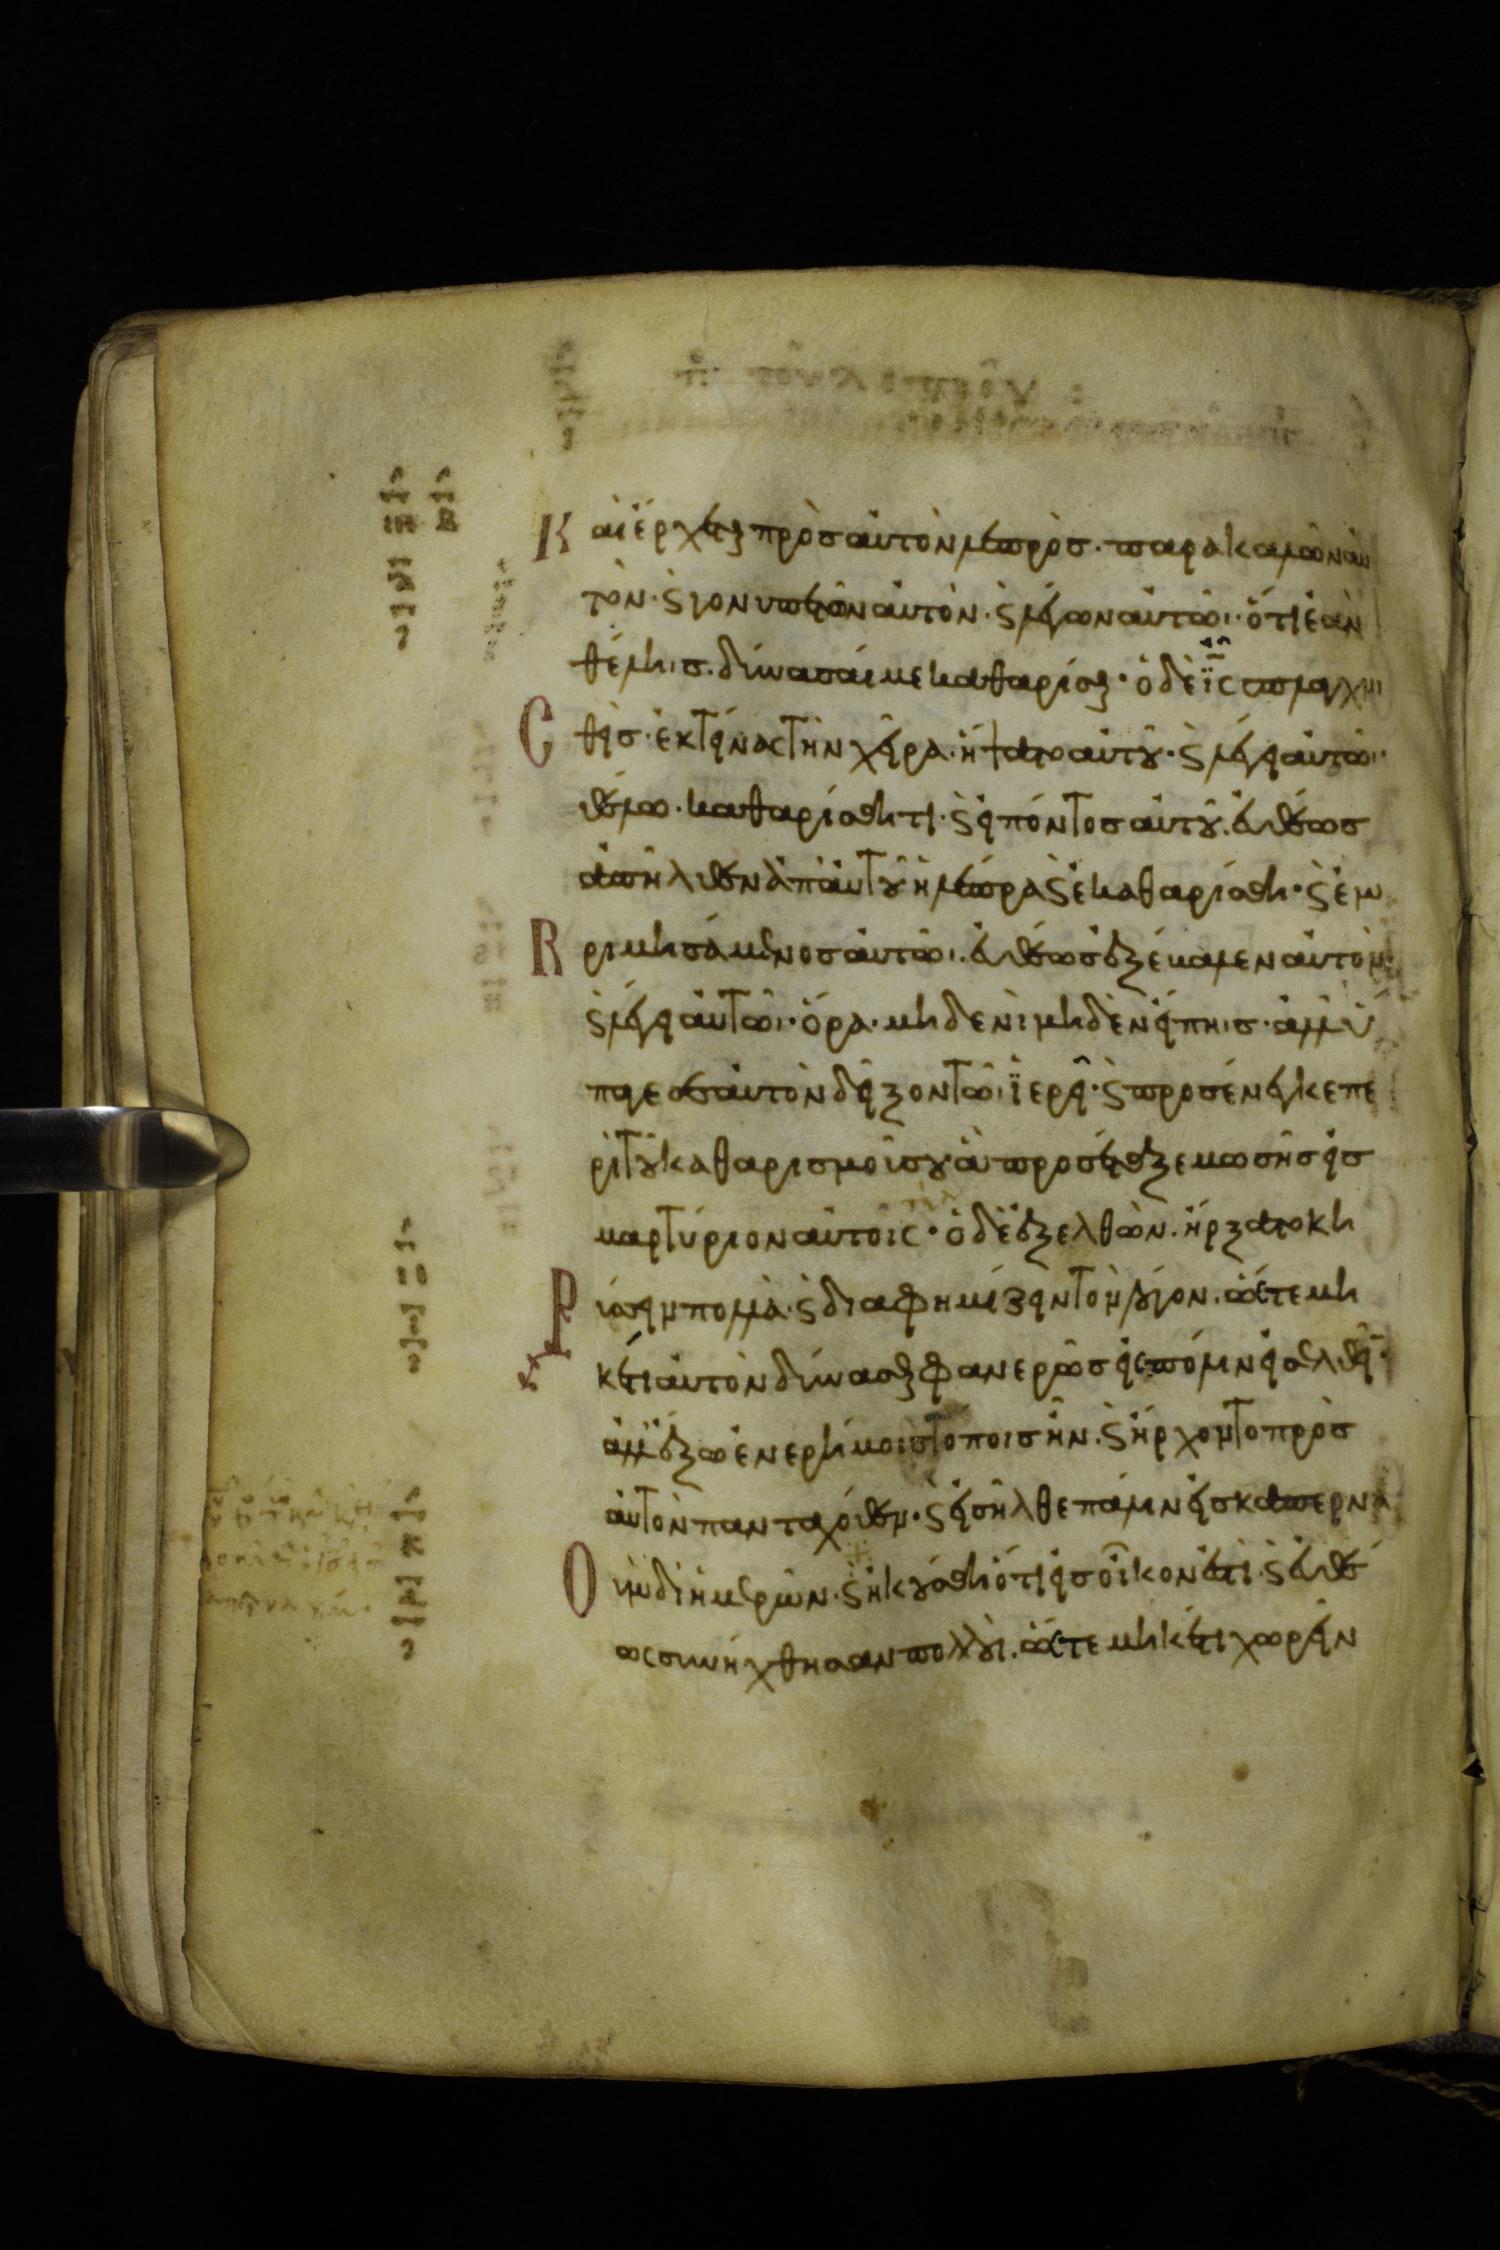 Καὶ ἔρχεται πρὸς αὐτὸν λεπρὸς· παρακαλῶν αὐ
τὸν· ϗ γονυπετῶν αὐτὸν· ϗ λέγων αὐτῶι· ὅτι ἐὰν
θέληις. δύνασαί με καθαρίσαι· ὁ δὲ ἰς σπλαγχνι
σθεὶς· ἐκτείνας τὴν χεῖρα· ἥψατο αὐτοῦ· ϗ λέγει αὐτῶι·
θέλω· καθαρίσθητι· ϗ εἰπόντος αὐτοῦ. εὐθέως
ἀπῆλθεν ἀπ αὐτοῦ ἡ λέπρα ϗ ἐκαθαρίσθη· ϗ ἐμ
βριμησάμενος αὐτῶι· εὐθέως ἐξέβαλεν αὐτόν
ϗ λέγει αὐτῶι· ὅρα· μηδενὶ μηδὲν εἴπηις· ἀλλ ὕ
παγε σεαυτὸν δεῖξον τῶι ἱερεῖ· ϗ προσένεγκε πε
ρὶ τοῦ καθαρισμοῦ σου ἃ προσέταξε μωσῆς εἰς
μαρτύριον αὐτοῖς· ὁ δὲ ἐξελθὼν. ἤρξατο κη
ρύσσειν πολλὰ· ϗ διαφημίζειν τὸν λόγον. ὥστε μη
κέτι αὐτὸν δύνασθαι φανερῶς εἰς πόλιν εἰσελθεῖν·
ἀλλ ἔξω ἐν ἐρήμοις τόποις ἦν. ϗ ἤρχοντο πρὸς
αὐτὸν πανταχόθεν· ϗ εἰσῆλθε πάλιν εἰς καπερνα
οὺμ δι ἡμερῶν· ϗ ἠκούσθη ὅτι εἰς οἶκον ἐστὶ· ϗ εὐθέ
ως συνήχθησαν πολλοὶ. ὥστε μηκέτι χωρεῖν